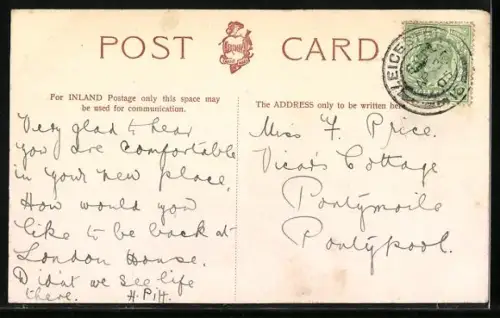 POST CARD
For INLAND Postage only this space may
be used for communication.
The ADDRESS only to be written here
Very glad to hear
you are comfortable
in your new place,
How would you
like to be back at
London House.
Didnt we see life
there. H. Pitt.
Miss F. Price.
Vicar's Cottage
Pontymoile
Pontypool.
LEICESTER